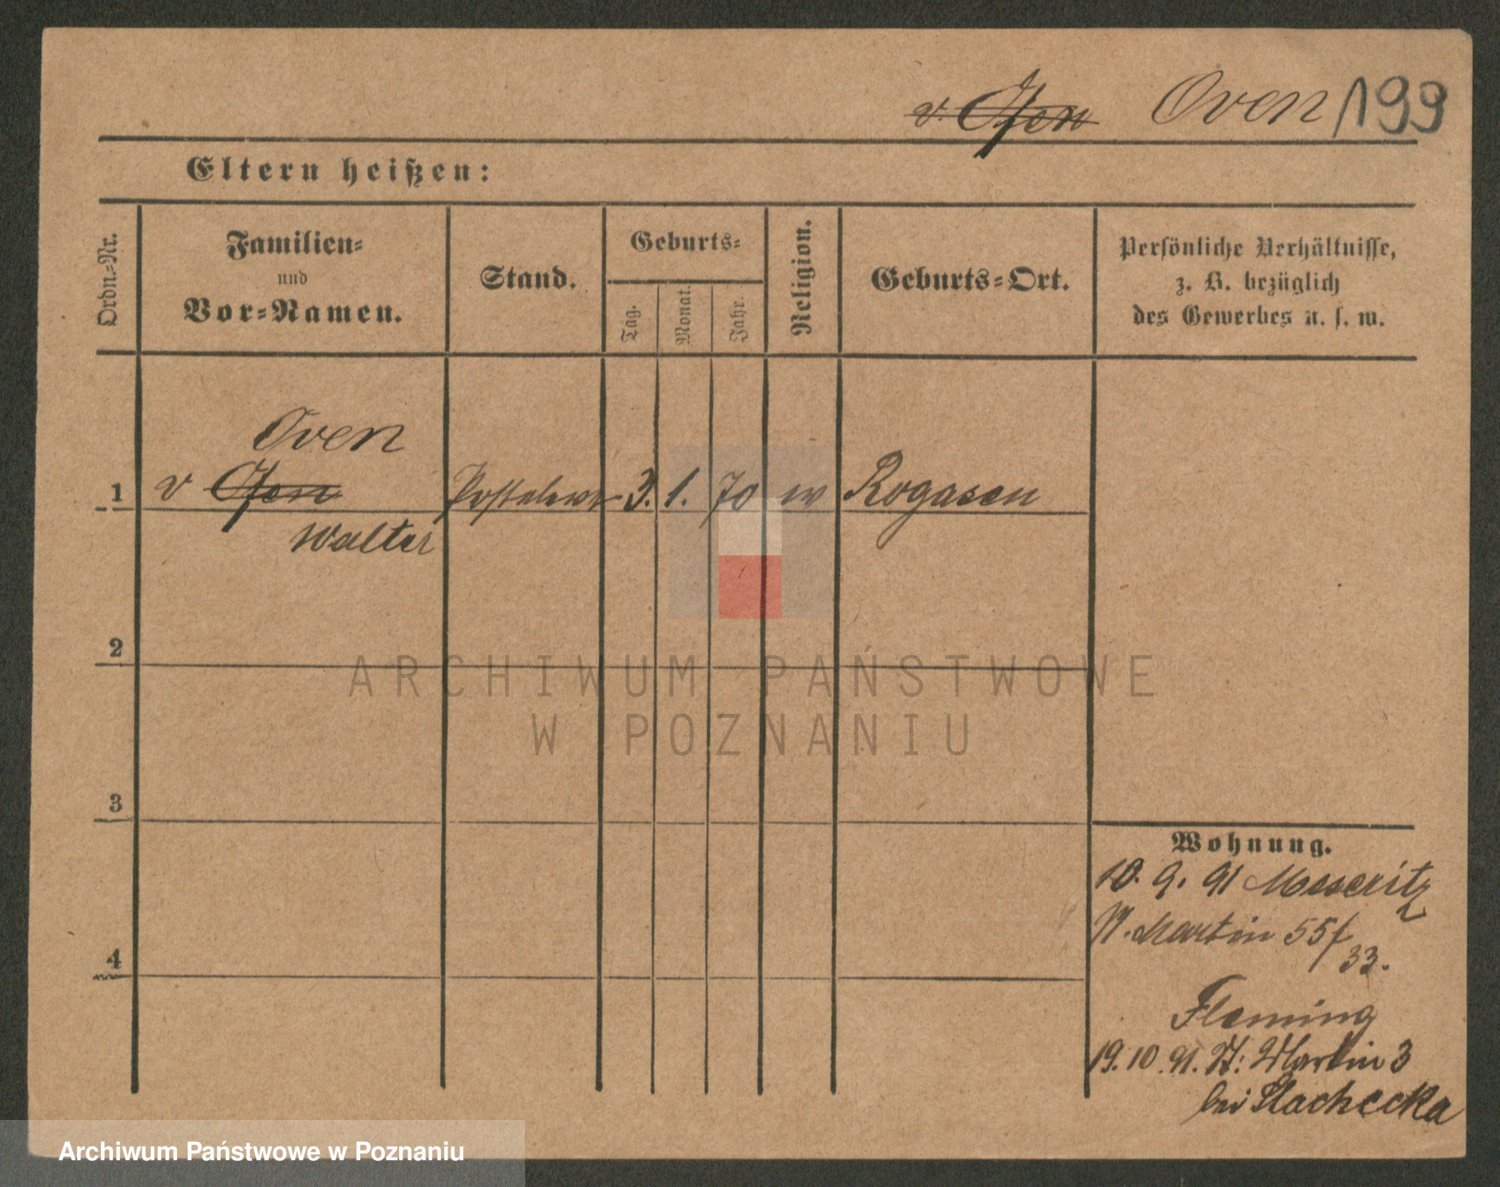 v. Ofen Oven 199
Eltern heißen:
Ordn.-Nr.
Familien-
und
Vor-Namen.
Stand.
Geburts-
Tag.
Monat.
Jahr.
Religion.
Geburts-Ort.
Persönliche Verhältnisse,
z. B. bezüglich
des Gewerbes u. s. w.
Oven
1 v Ofen 3. 1. 70 Rogasen
Walter
2
3
4
Wohnung.
10. 9. 91 Meseritz
St. Martin 55/
33.
Fleming
19. 10. 91. St. Martin 3
bei Stachecka
ARCHIWUM PAŃSTWOWE
W POZNANIU
Archiwum Państwowe w Poznaniu